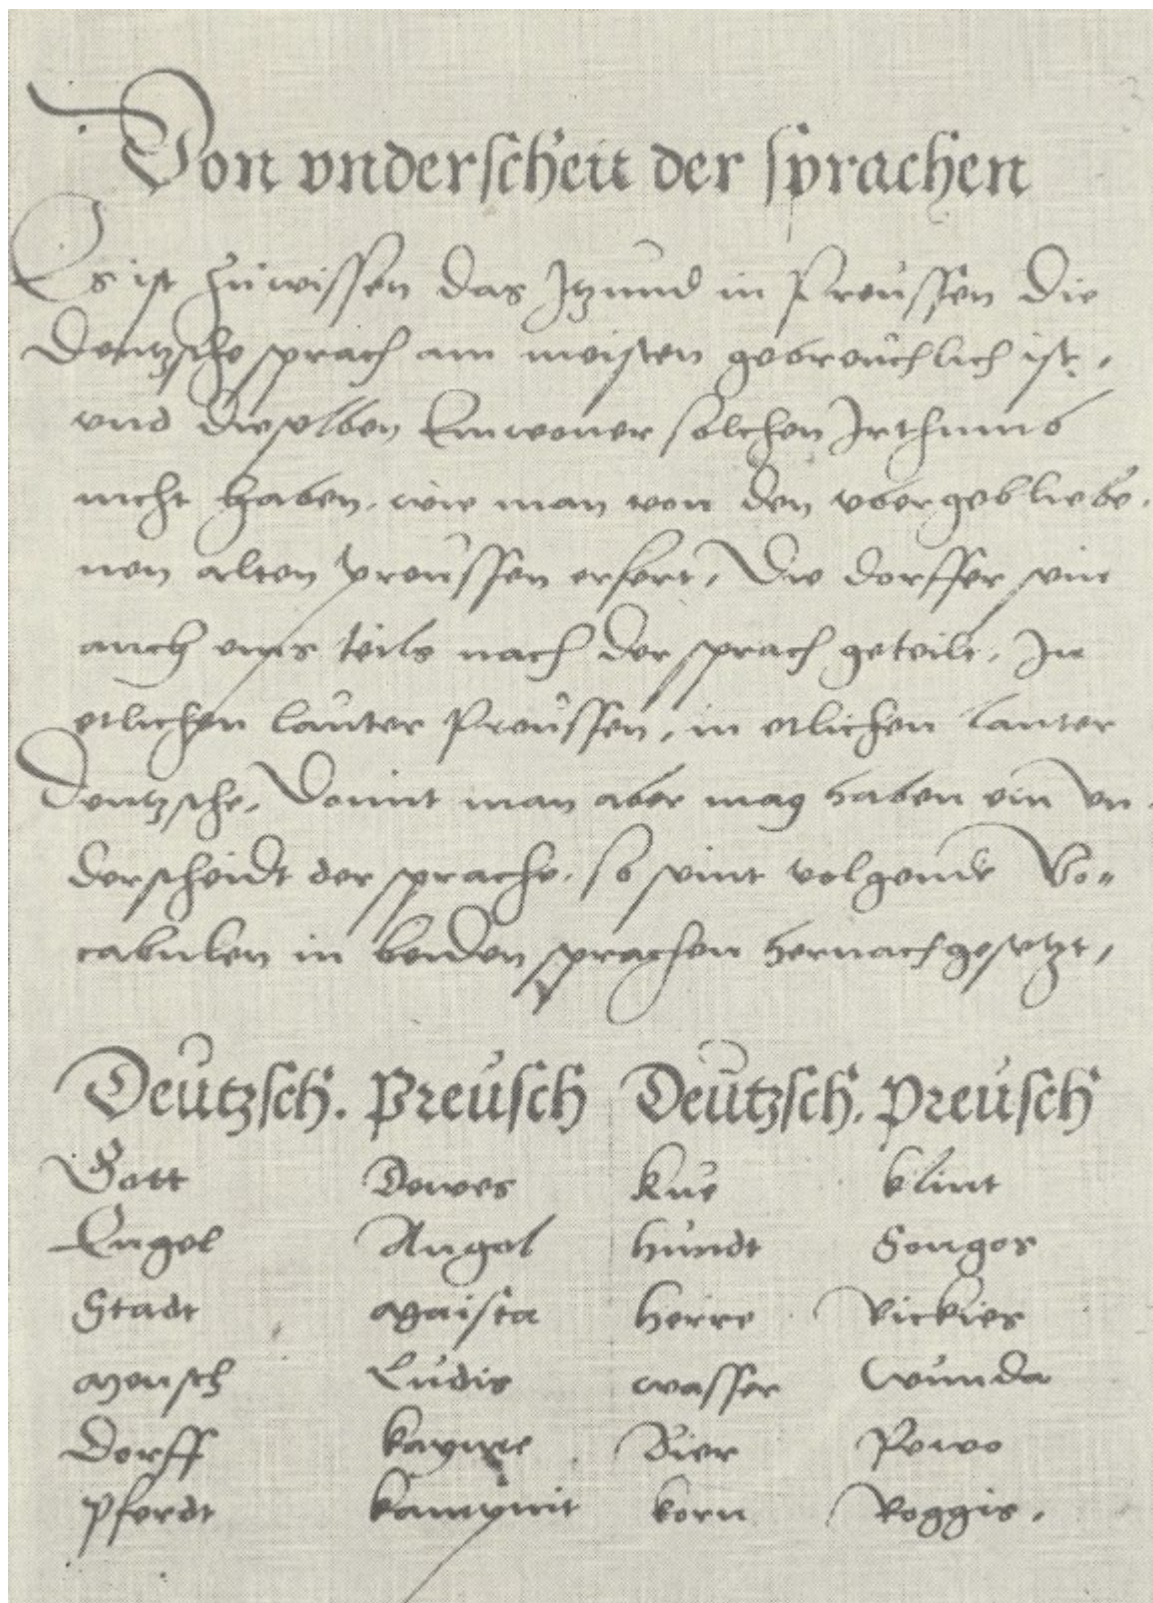 Von vnderscheit der sprachen
Es ist zuwissen das Itzund in Preussen die
Deutzsche sprach am meisten gebreuchlich ist,
vnd dieselben Einwoner solchen Irthumb
nicht haben, wie man von den vbergebliebe-
nen alten preussen erfert, Die dorffer seint
auch eins teils nach der sprach geteilt, In
etlichen lauter Preussen, in etlichen lauter
Deutzsche, Damit man aber mag haben ein vn-
derscheidt der sprache, so seint volgende Vo-
cabulen in beiden sprachen hernach gesetzt,
Deutzsch. Preusch Deutzsch. Preusch
Gott Dewes Kue klint
Engel Angol hundt Songos
Stadt Maista herre Rickies
Mensch Ludis wasser Wunda
Dorff kayme Bier Pewo
Pferdt kamnit korn Roggis,